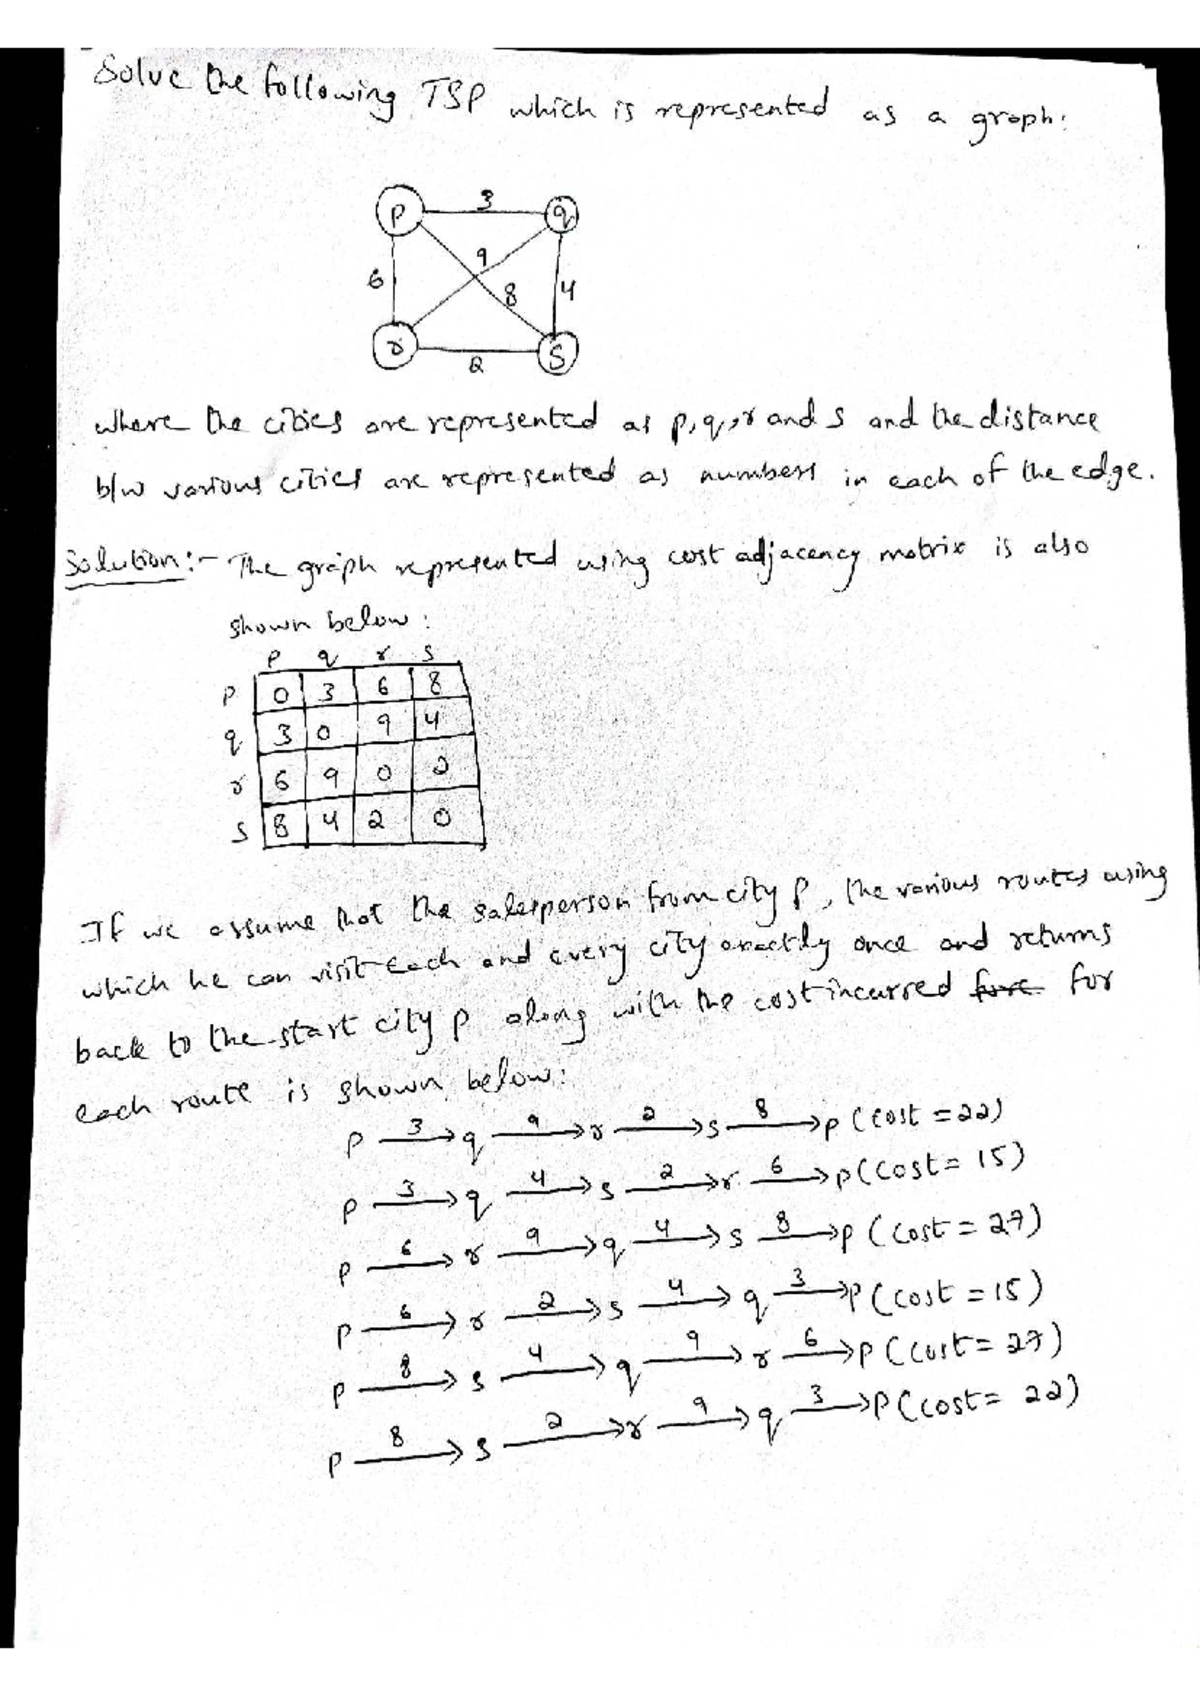 Solve the following TSP which is represented as a graph:
p 3 q
9
6 8 4
r 2 s
where the cities are represented as p,q,r and s and the distance
b/w various cities are represented as numbers in each of the edge.
Solution:- The graph represented using cost adjacency matrix is also
shown below:
p q r s
p 0 3 6 8
q 3 0 9 4
r 6 9 0 2
s 8 4 2 0
If we assume that the salesperson from city p, the various routes using
which he can visit each and every city exactly once and returns
back to the start city p along with the cost incurred for
each route is shown below:
p 3→ q 9→ r 2→ s 8→ p (cost = 22)
p 3→ q 4→ s 2→ r 6→ p (cost = 15)
p 6→ r 9→ q 4→ s 8→ p (cost = 27)
p 6→ r 2→ s 4→ q 3→ p (cost = 15)
p 8→ s 4→ q 9→ r 6→ p (cost = 27)
p 8→ s 2→ r 9→ q 3→ p (cost = 22)